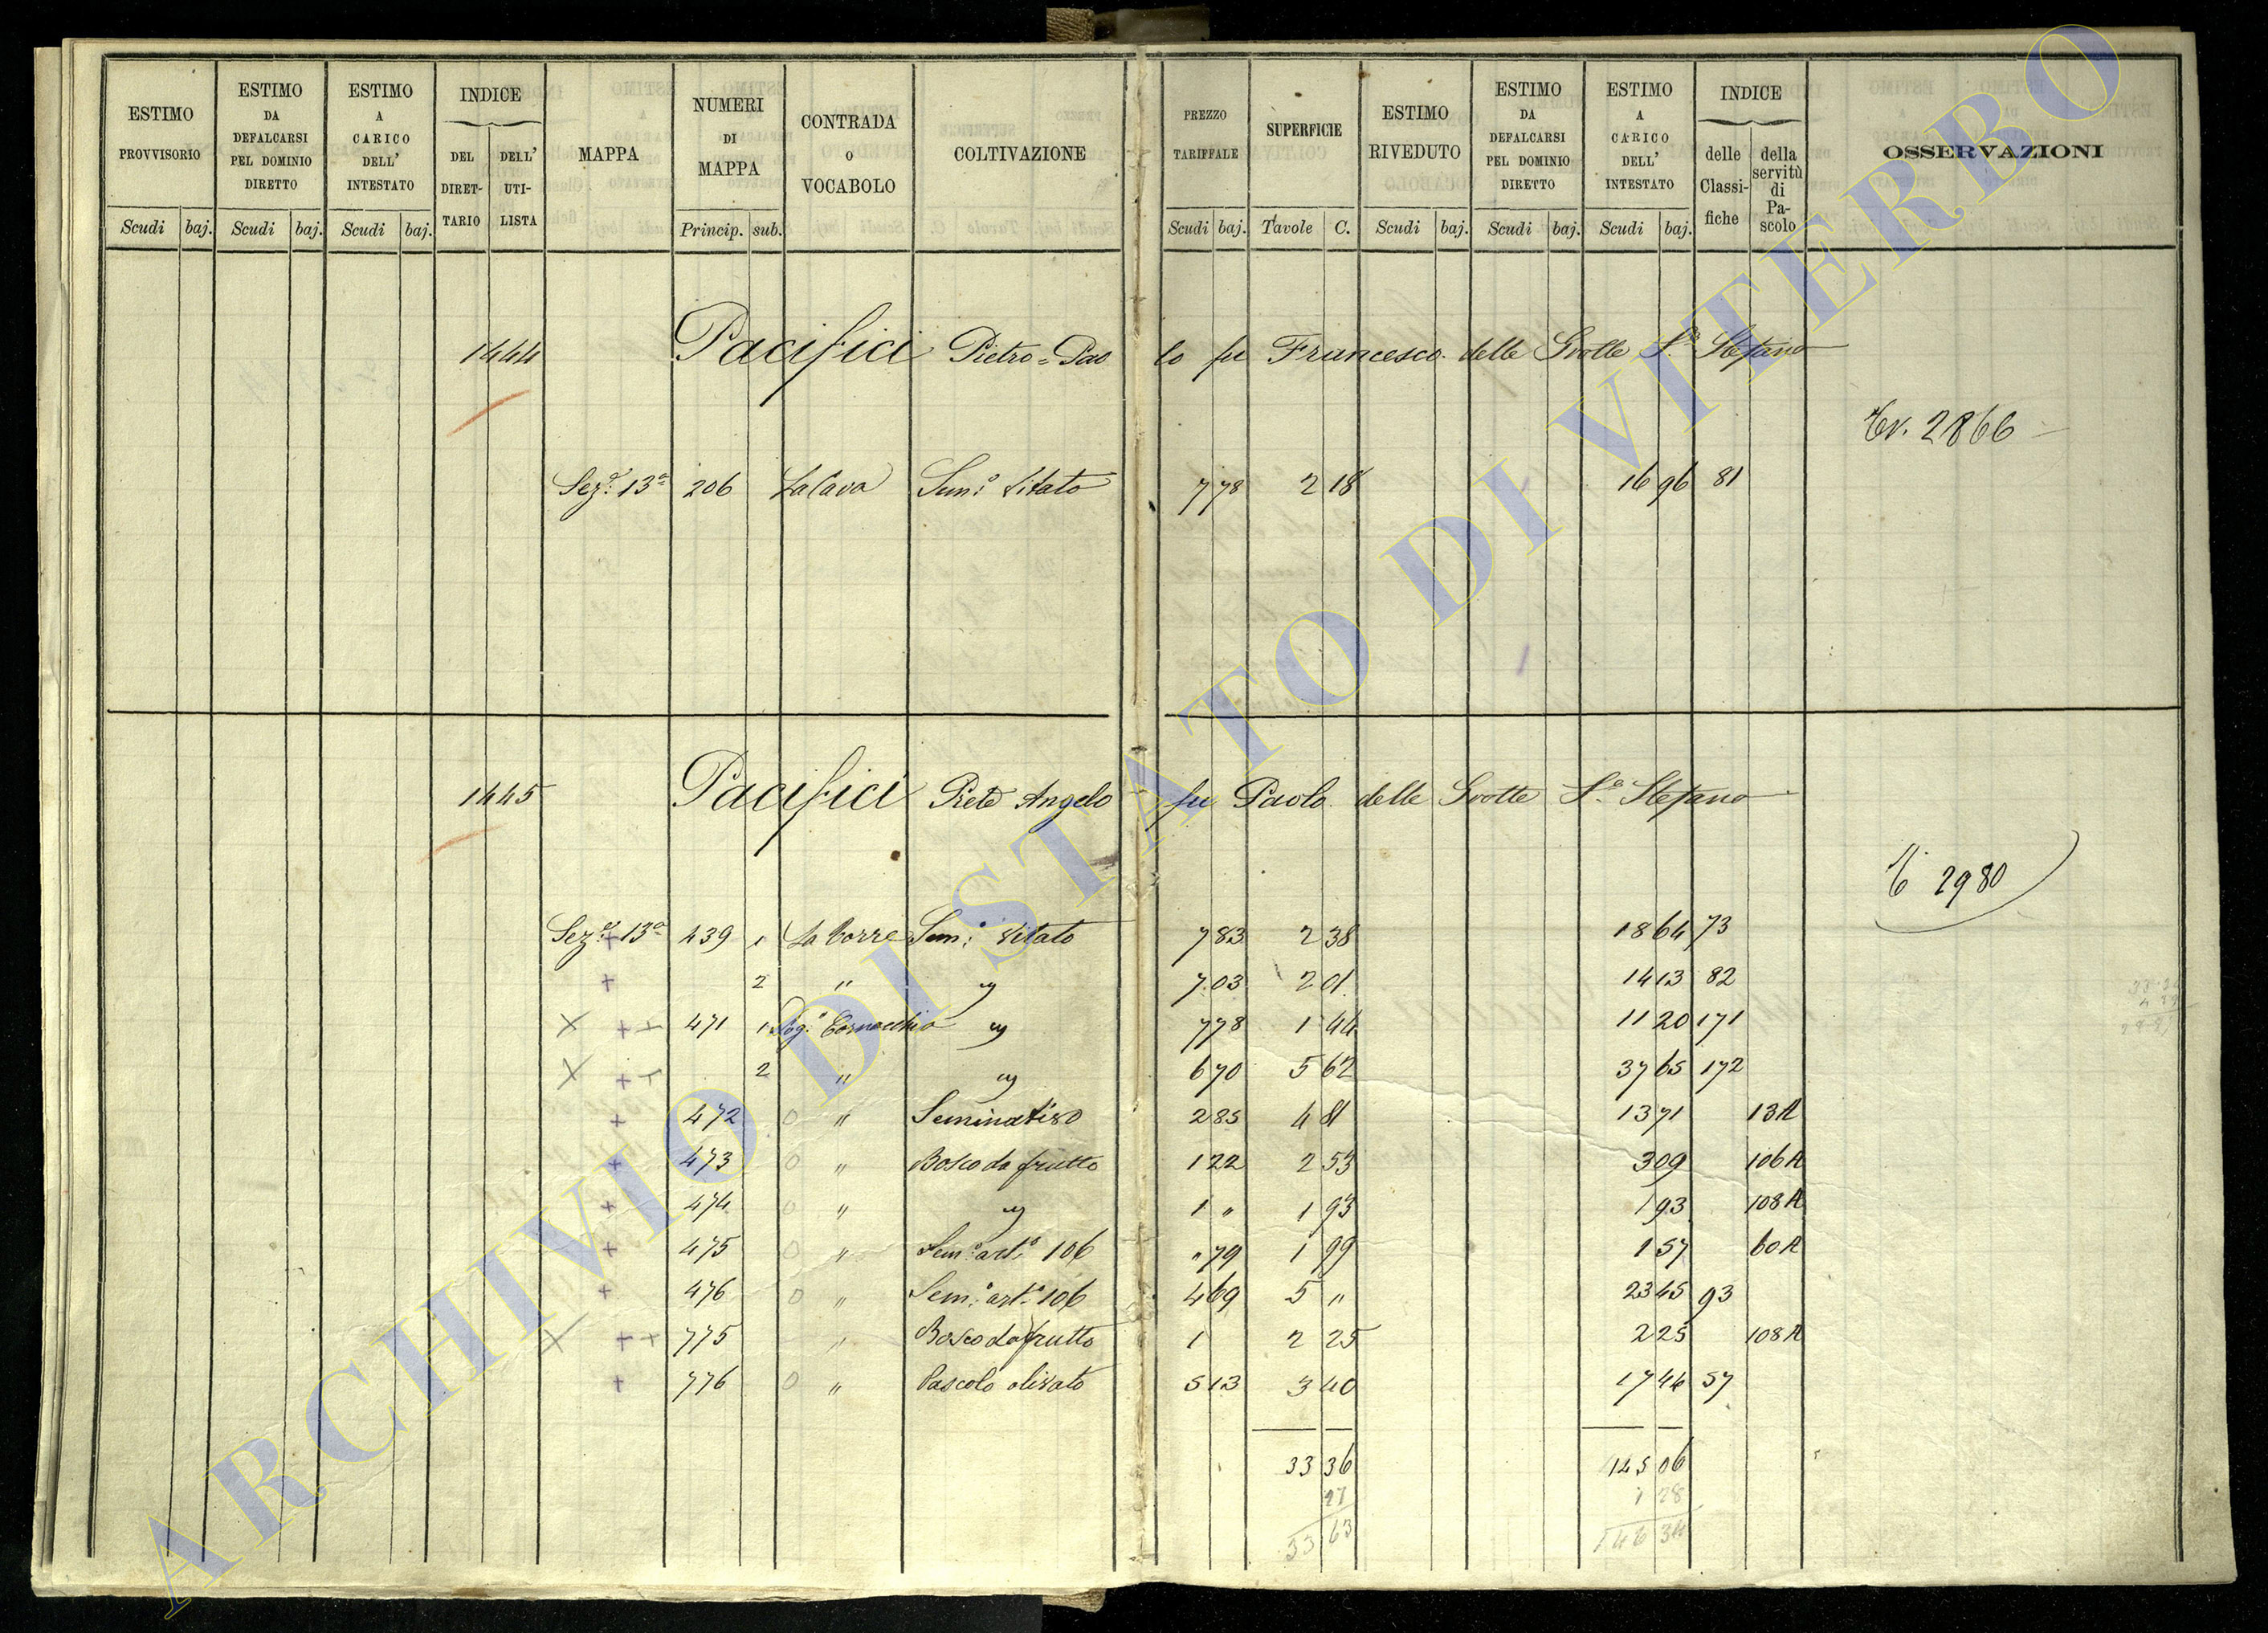 ESTIMO PROVVISORIO Scudi baj.
ESTIMO DA DEFALCARSI PEL DOMINIO DIRETTO Scudi baj.
ESTIMO A CARICO DELL' INTESTATO Scudi baj.
INDICE DEL DIRETTARIO DELL' UTILISTA
MAPPA
NUMERI DI MAPPA Princip. sub.
CONTRADA O VOCABOLO
COLTIVAZIONE
PREZZO TARIFFALE Scudi baj.
SUPERFICIE Tavole C.
ESTIMO RIVEDUTO Scudi baj.
ESTIMO DA DEFALCARSI PEL DOMINIO DIRETTO Scudi baj.
ESTIMO A CARICO DELL' INTESTATO Scudi baj.
INDICE delle Classifiche della servitù di Pascolo
OSSERVAZIONI
1444 Pacifici Pietro=Paolo fu Francesco delle Grotte S.º Stefano
2866
Sez.e 13a 206 La Cava Sem.º Vitato 7 78 2 18 16 96 81
1445 Pacifici Prete Angelo fu Paolo delle Grotte S.º Stefano
2980
Sez.e 13a 439 1 La Torre Sem.º Vitato 7 83 2 38 18 64 73
+ 2 " " 7 03 2 01 14 13 82
X + + 471 1 Pog.º Cornacchia " 7 78 1 44 11 20 171
X + + 2 " " 6 70 5 62 37 65 172
+ 472 0 " Seminativo 2 85 4 81 13 71 13A
+ 473 0 " Bosco da frutto 1 22 2 53 3 09 106A
+ 474 0 " " 1 " 1 93 1 93 108A
+ 475 0 " Sem.º art.º 106 " 79 1 99 1 57 60A
+ 476 0 " Sem.º art.º 106 4 69 5 " 23 45 93
X + + 775 " Bosco da frutto 1 2 25 2 25 108A
+ 776 0 " Pascolo olivato 5 13 3 40 17 44 57
33 36 145 06
27 1 28
33 63 146 34
ARCHIVIO DI STATO DI VITERBO